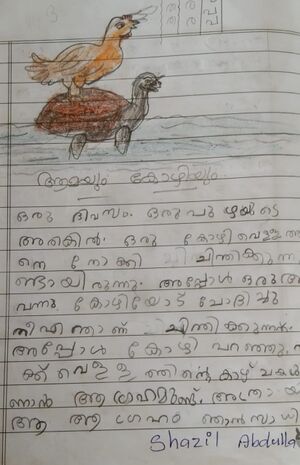 ആമയും കോഴിയും
ഒരു ദിവസം. ഒരു പുഴയുടെ
അരികിൽ. ഒരു കോഴി വെള്ള
നെ നോക്കി ചിന്തിക്കുന്ന
ണ്ടായിരുന്നു. അപ്പോൾ ഒരു ആ
വന്നു. കോഴിയോട് ചോദിച്ചു
നീ എന്താണ് ചിന്തിക്കുന്നത്.
അപ്പോൾ കോഴി പറഞ്ഞു.
ക്ക് വെള്ളത്തിന്റെ കാഴ്
ണാൻ ആഗ്രഹമുണ്ട്.
ആ ആഗ്രഹം ഞാൻ സാധി
Shazil Abdulla